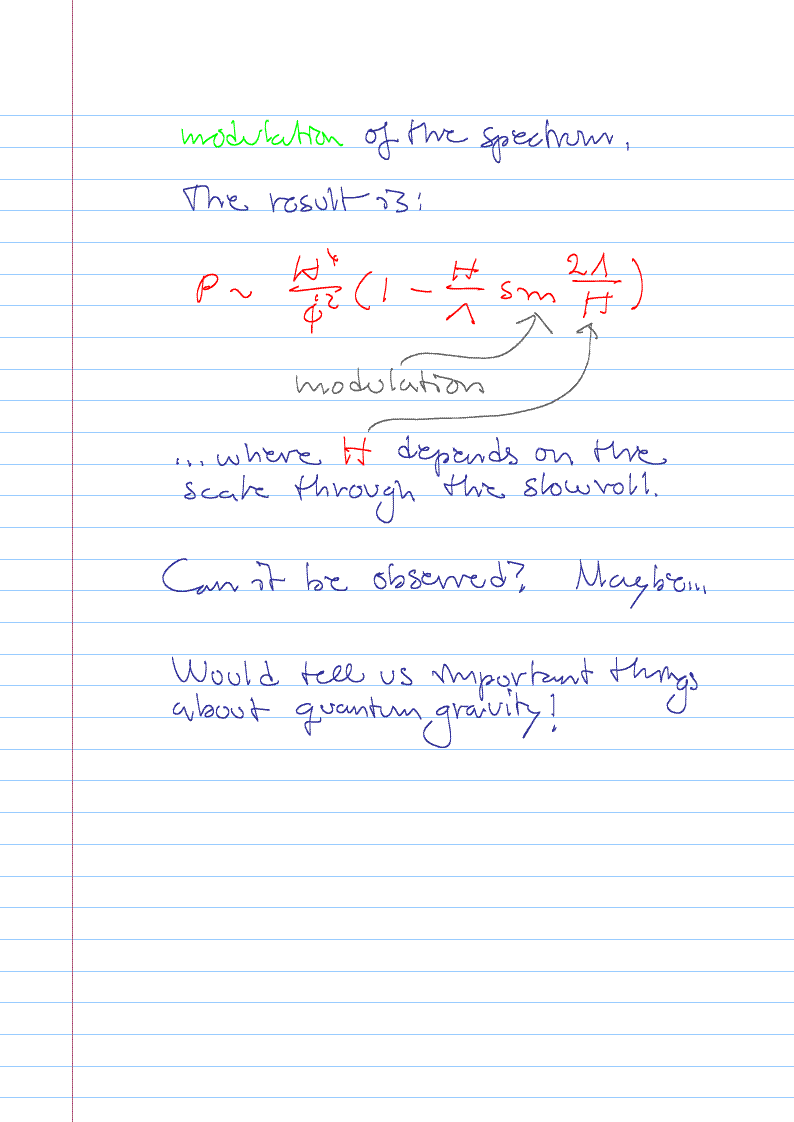 modulation of the spectrum.
The result is:
P ~ H⁴/φ̇² (1 - H/Λ sin 2Λ/H)
modulation
...where H depends on the
scale through the slowroll.
Can it be observed? Maybe...
Would tell us important things
about quantum gravity!